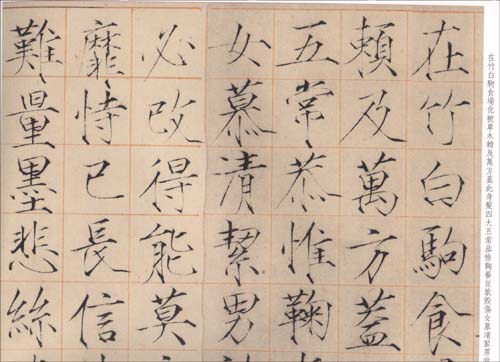 在竹白駒食場化被草木賴及萬方蓋此身髮四大五常恭惟鞠養豈敢毀傷女慕清絜男
在竹白駒食
賴及萬方蓋
五常恭惟鞠
女慕清絜男
必改得能莫
靡恃己長信
難量墨悲絲